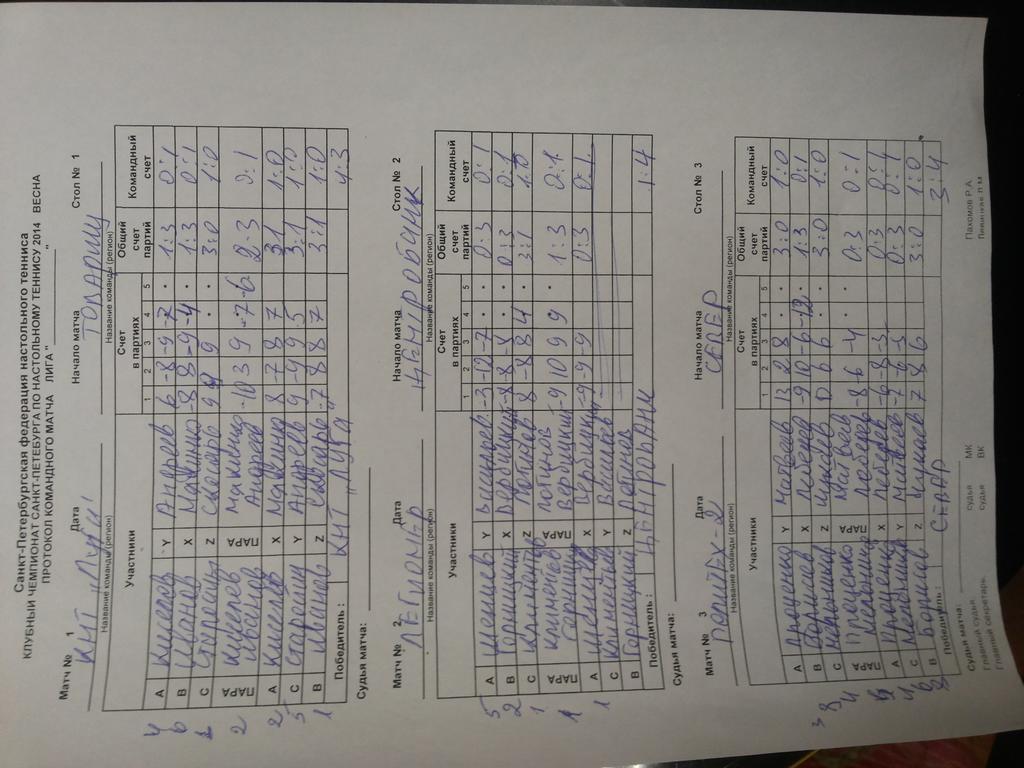 Санкт-Петербургская федерация настольного тенниса
КЛУБНЫЙ ЧЕМПИОНАТ САНКТ-ПЕТЕБУРГА ПО НАСТОЛЬНОМУ ТЕННИСУ 2014 ВЕСНА
ПРОТОКОЛ КОМАНДНОГО МАТЧА ЛИГА "_______________"
Матч № 1 Дата Начало матча Стол № 1
КНТ „Луга" ТОВАРИЩ
Название команды (регион) Название команды (регион)
Участники Счет в партиях Общий счет партий Командный счет
1 2 3 4 5
4 A Киселев Y Андреев 6 -8 -9 -7 · 1:3 0:1
6 B Иванов X Макинко -8 8 -9 -4 · 1:3 0:1
C Старовит Z Скосарь 9 9 9 · · 3:0 1:0
2 ПАРА Киселев Иванов ПАРА Макинко Андреев -10 3 9 -7 -6 2-3 0:1
2 A Киселев X Макинко 8 -7 8 7 3:1 1:0
5 C Старовит Y Андреев 9 -9 9 5 3:1 1:0
1 B Иванов Z Скосарь -7 8 8 7 3:1 1:0
Победитель : КНТ „Луга" 4:3
Судья матча:
Матч № 2 Дата Начало матча Стол № 2
ЛЕГИОНЕР ЦЕНТРОБАНК
Название команды (регион) Название команды (регион)
Участники Счет в партиях Общий счет партий Командный счет
1 2 3 4 5
5 A Шенцев Y Васильев -3 -12 -7 · · 0:3 0:1
2 B Горницкий X Вербицкий -8 -8 -8 · · 0:3 0:1
1 C Климентьев Z Логинов 8 -8 8 4 · 3:1 1:0
1 ПАРА Климентьев Горницкий ПАРА Логинов Вербицкий -9 10 9 9 · 1:3 0:1
1 A Шенцев X Вербицкий -9 -9 -9 0:3 0:1
C Климентьев Y Васильев
B Горницкий Z Логинов
Победитель : ЦЕНТРОБАНК 1:4
Судья матча:
Матч № 3 Дата Начало матча Стол № 3
ПОЛИТЕХ-2 СЕВЕР
Название команды (регион) Название команды (регион)
Участники Счет в партиях Общий счет партий Командный счет
1 2 3 4 5
A Проценко Y Матвеев 13 2 8 · · 3:0 1:0
B Борисов X Лебедев -9 10 -6 -12 · 1:3 0:1
3 8 C Мельников Z Чукаев 0 6 6 · · 3:0 1:0
4 ПАРА Проценко Мельников ПАРА Матвеев Лебедев -8 -6 -4 · · 0:3 0:1
A Проценко X Лебедев -6 -8 -3 0:3 0:1
C Мельников Y Матвеев -7 -6 -3 0:3 0:1
6 B Борисов Z Чукаев 7 8 6 3:0 1:0
8 Победитель : СЕВЕР 3:4
Судья матча:
Главный судья, судья МК Пахомов Р.А.
Главный секретарь, судья ВК